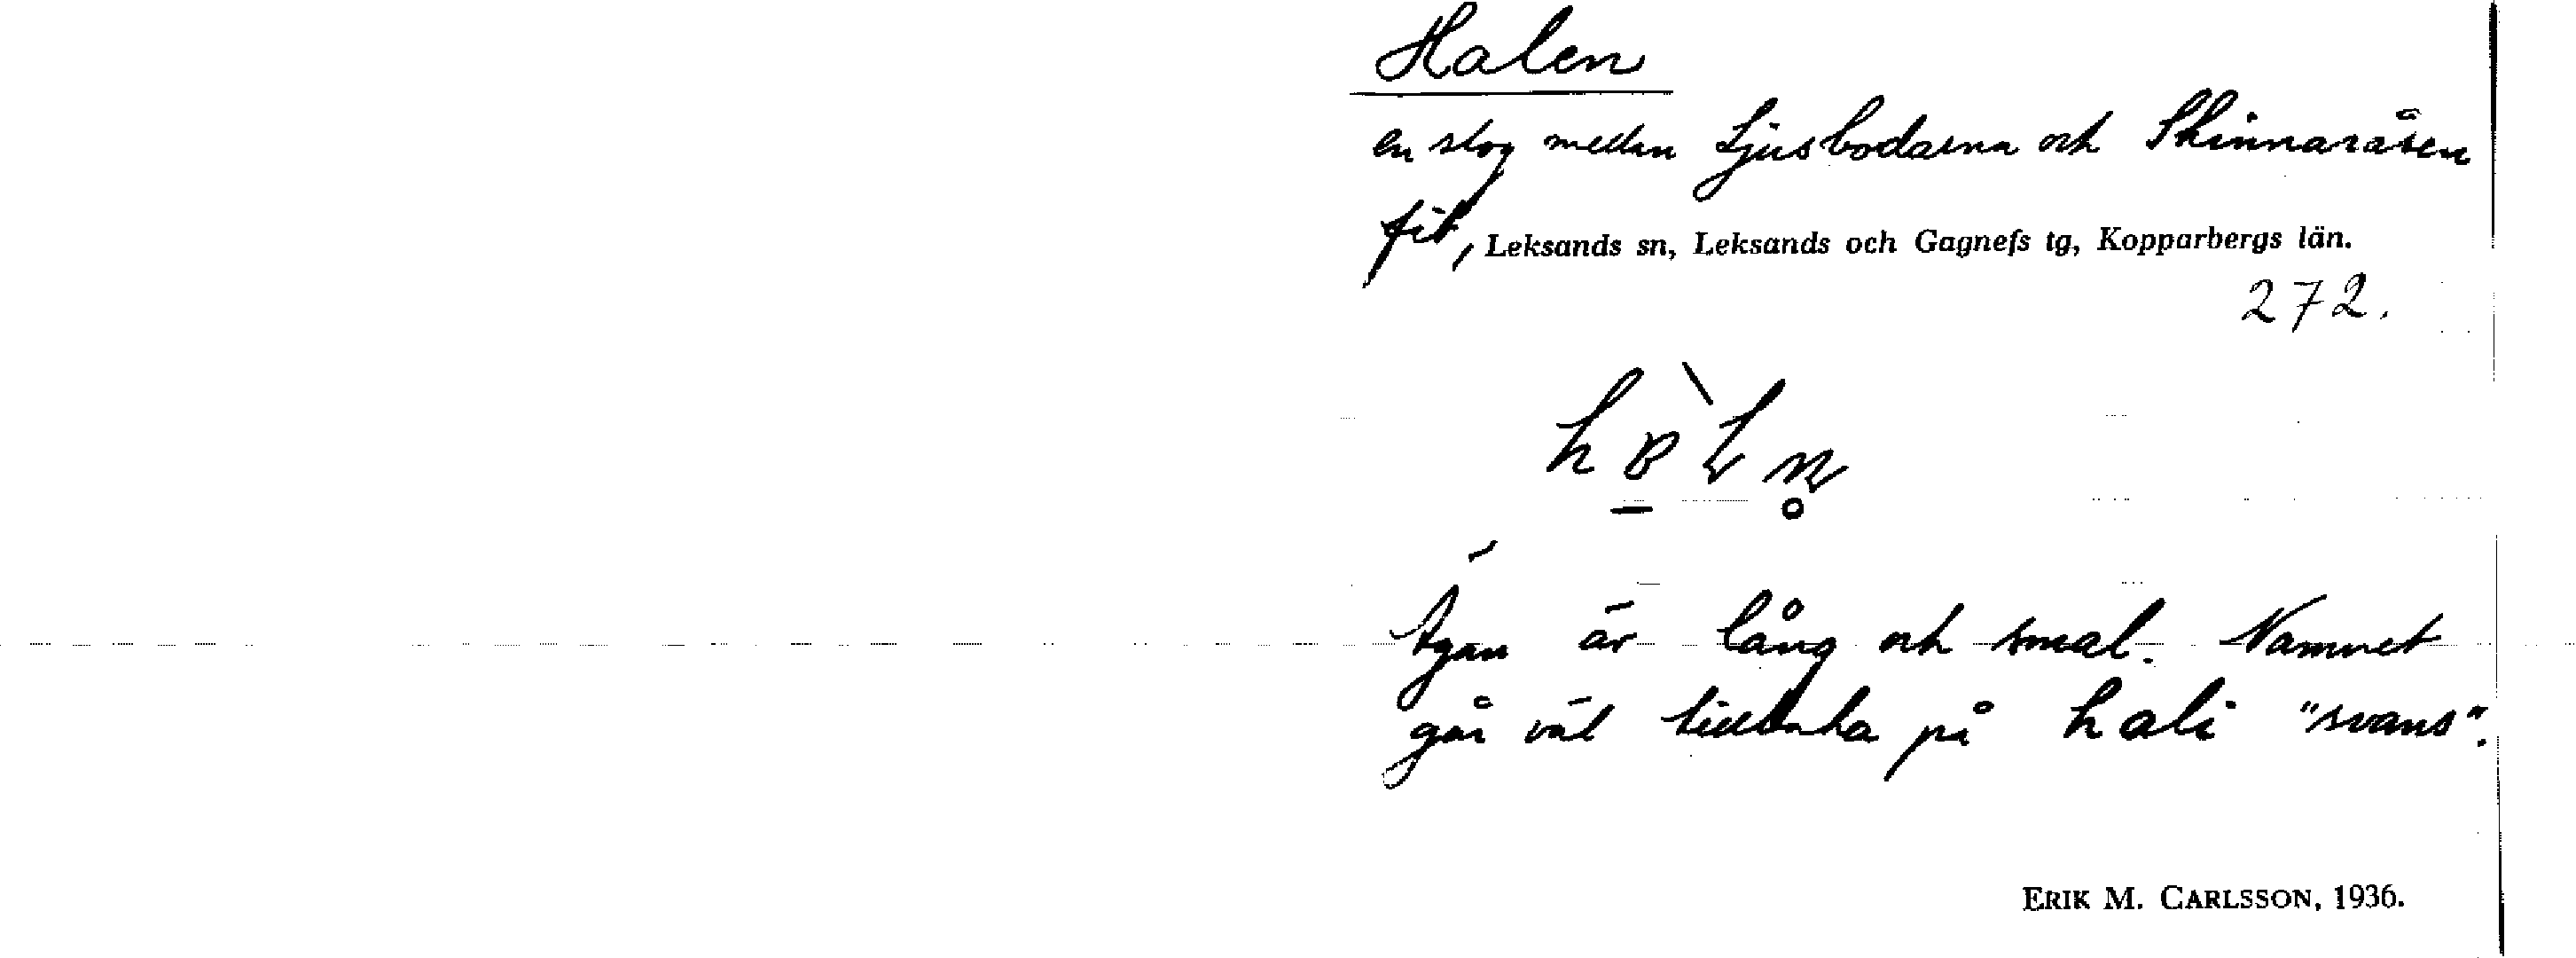 Halen
en slog medan Ljusbodarna och Skinnaråsen
fib, Leksands sn, Leksands och Gagnefs tg, Kopparbergs län.
272.
Ägan är lång och smal. Namnet
går väl tillbaka på hali "svans".
ERIK M. CARLSSON, 1936.